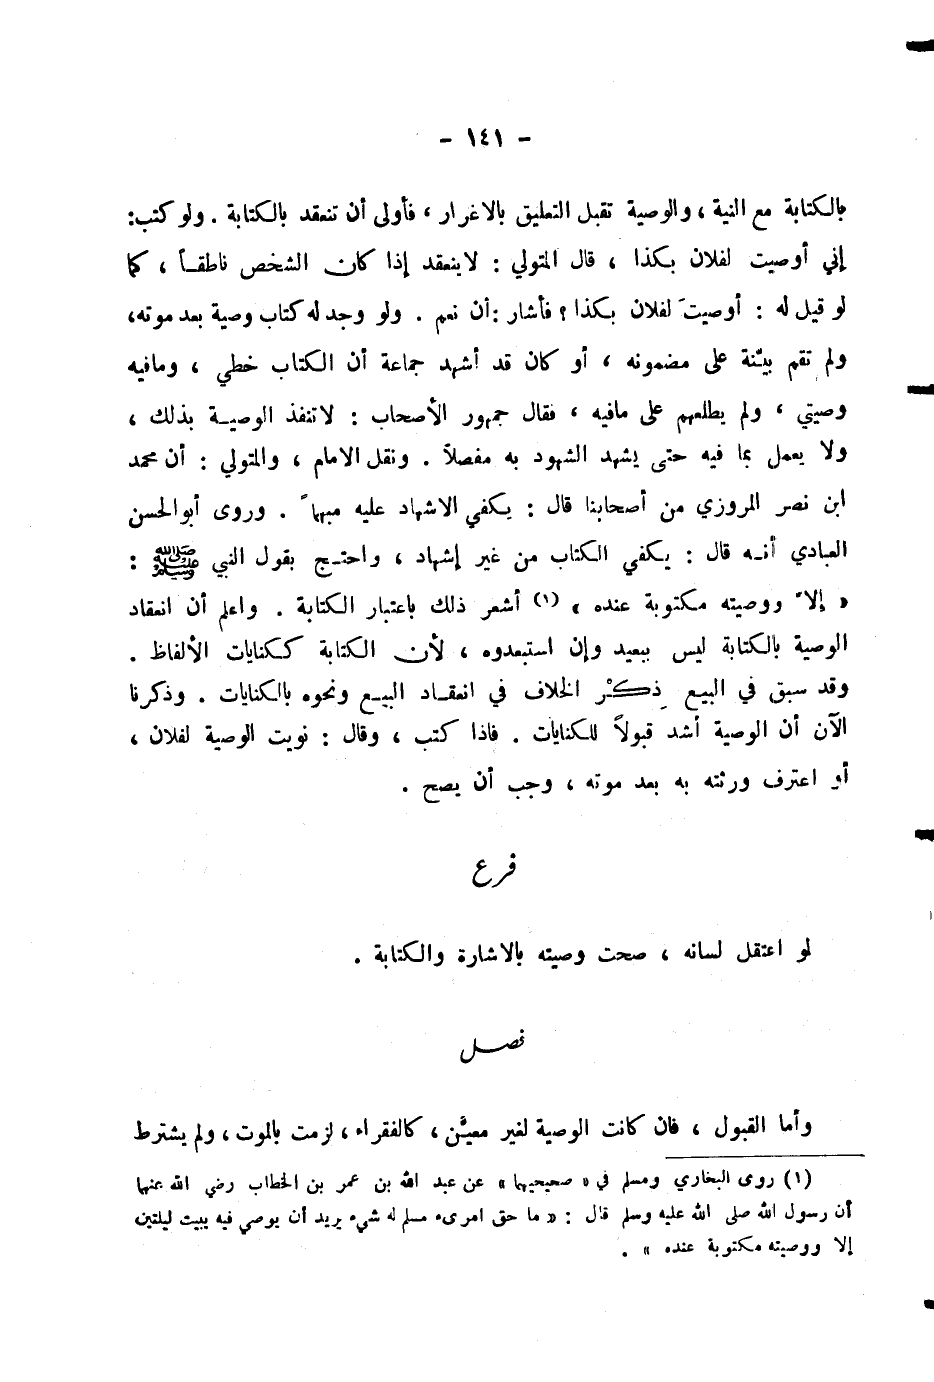 - ١٤١ -
بالكتابة مع النية ، والوصية تقبل التعليق بالاغرار ، فأولى أن تنعقد بالكتابة . ولو كتب:
إني أوصيت لفلان بكذا ، قال المتولي : لاينعقد إذا كان الشخص ناطقاً ، كما
لو قيل له : أوصيتَ لفلان بكذا ؟ فأشار :أن نعم . ولو وجد له كتاب وصية بعد موته،
ولم تقم بيّنة على مضمونه ، أو كان قد أشهد جماعة أن الكتاب خطي ، ومافيه
وصيتي ، ولم يطلعهم على مافيه ، فقال جمهور الأصحاب : لاتنفذ الوصية بذلك ،
ولا يعمل بما فيه حتى يشهد الشهود به مفصلاً . ونقل الامام ، والمتولي : أن محمد
ابن نصر المروزي من أصحابنا قال : يكفي الاشهاد عليه مبهماً . وروى أبوالحسن
العبادي أنه قال : يكفي الكتاب من غير إشهاد ، واحتج بقول النبي ﷺ :
« إلا ووصيته مكتوبة عنده » (١) أشعر ذلك باعتبار الكتابة . واعلم أن انعقاد
الوصية بالكتابة ليس ببعيد وإن استبعدوه ، لأن الكتابة ككنايات الألفاظ .
وقد سبق في البيع ذِكْر الخلاف في انعقاد البيع ونحوه بالكنايات . وذكرنا
الآن أن الوصية أشد قبولاً للكنايات . فاذا كتب ، وقال : نويت الوصية لفلان ،
أو اعترف ورثته به بعد موته ، وجب أن يصح .
فرع
لو اعتقل لسانه ، صحت وصيته بالاشارة والكتابة .
فصل
وأما القبول ، فان كانت الوصية لغير معيَّن ، كالفقراء ، لزمت بالموت ، ولم يشترط
(١) روى البخاري ومسلم في « صحيحيهما » عن عبد الله بن عمر بن الخطاب رضي الله عنهما
أن رسول الله صلى الله عليه وسلم قال : « ما حق امرىء مسلم له شيء يريد أن يوصي فيه يبيت ليلتين
إلا ووصيته مكتوبة عنده » .